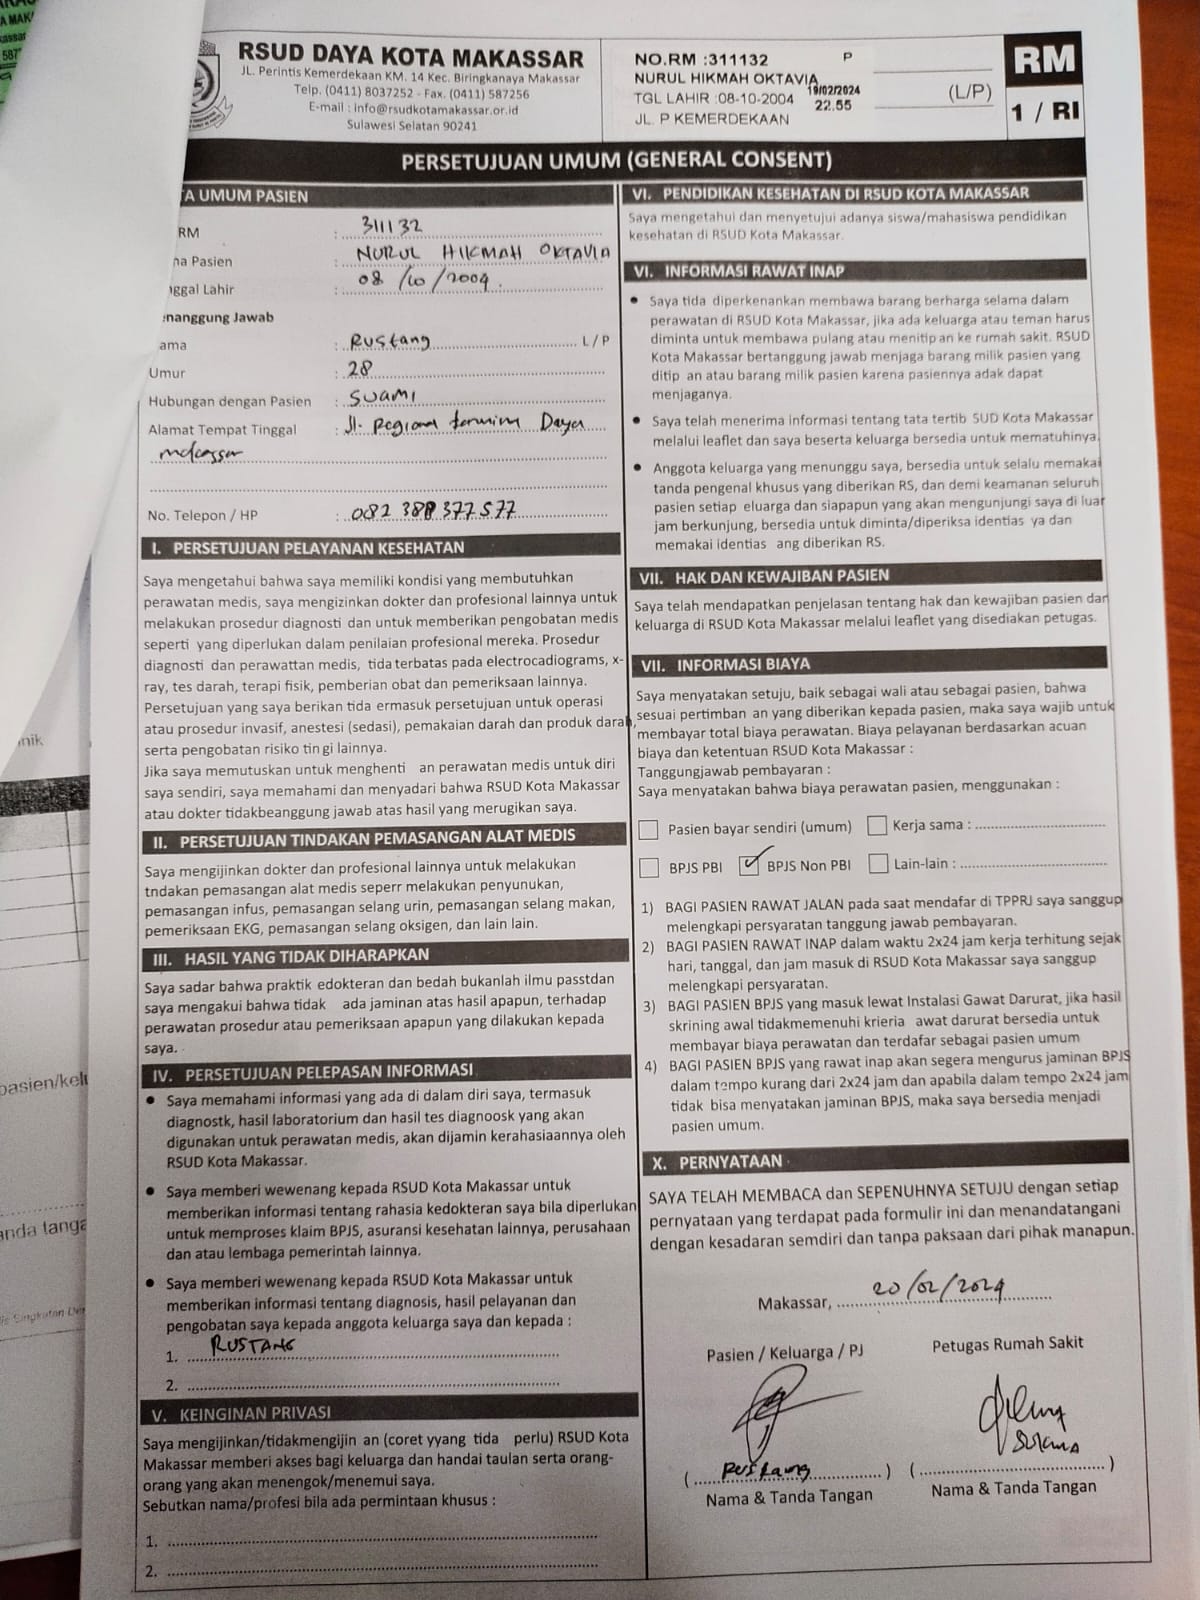 RSUD DAYA KOTA MAKASSAR
JL. Perintis Kemerdekaan KM. 14 Kec. Biringkanaya Makassar
Telp. (0411) 8037252 - Fax. (0411) 587256
E-mail : info@rsudkotamakassar.or.id
Sulawesi Selatan 90241
NO.RM :311132 P
NURUL HIKMAH OKTAVIA
TGL LAHIR :08-10-2004
19/02/2024
22.55
JL. P KEMERDEKAAN
(L/P)
RM
1 / RI
PERSETUJUAN UMUM (GENERAL CONSENT)
TA UMUM PASIEN
RM : 311132
na Pasien : NURUL HIKMAH OKTAVIA
nggal Lahir : 08/10/2004
enanggung Jawab
ama : Rustang L / P
Umur : 28
Hubungan dengan Pasien : Suami
Alamat Tempat Tinggal : Jl. Regional Daya
makassar
No. Telepon / HP : 082 388 377 577
I. PERSETUJUAN PELAYANAN KESEHATAN
Saya mengetahui bahwa saya memiliki kondisi yang membutuhkan
perawatan medis, saya mengizinkan dokter dan profesional lainnya untuk
melakukan prosedur diagnosti dan untuk memberikan pengobatan medis
seperti yang diperlukan dalam penilaian profesional mereka. Prosedur
diagnosti dan perawattan medis, tida terbatas pada electrocadiograms, x-
ray, tes darah, terapi fisik, pemberian obat dan pemeriksaan lainnya.
Persetujuan yang saya berikan tida ermasuk persetujuan untuk operasi
atau prosedur invasif, anestesi (sedasi), pemakaian darah dan produk darah,
serta pengobatan risiko tin gi lainnya.
Jika saya memutuskan untuk menghenti an perawatan medis untuk diri
saya sendiri, saya memahami dan menyadari bahwa RSUD Kota Makassar
atau dokter tidakbeanggung jawab atas hasil yang merugikan saya.
II. PERSETUJUAN TINDAKAN PEMASANGAN ALAT MEDIS
Saya mengijinkan dokter dan profesional lainnya untuk melakukan
tndakan pemasangan alat medis seperr melakukan penyunukan,
pemasangan infus, pemasangan selang urin, pemasangan selang makan,
pemeriksaan EKG, pemasangan selang oksigen, dan lain lain.
III. HASIL YANG TIDAK DIHARAPKAN
Saya sadar bahwa praktik edokteran dan bedah bukanlah ilmu passtdan
saya mengakui bahwa tidak ada jaminan atas hasil apapun, terhadap
perawatan prosedur atau pemeriksaan apapun yang dilakukan kepada
saya.
IV. PERSETUJUAN PELEPASAN INFORMASI
• Saya memahami informasi yang ada di dalam diri saya, termasuk
diagnostk, hasil laboratorium dan hasil tes diagnoosk yang akan
digunakan untuk perawatan medis, akan dijamin kerahasiaannya oleh
RSUD Kota Makassar.
• Saya memberi wewenang kepada RSUD Kota Makassar untuk
memberikan informasi tentang rahasia kedokteran saya bila diperlukan
untuk memproses klaim BPJS, asuransi kesehatan lainnya, perusahaan
dan atau lembaga pemerintah lainnya.
• Saya memberi wewenang kepada RSUD Kota Makassar untuk
memberikan informasi tentang diagnosis, hasil pelayanan dan
pengobatan saya kepada anggota keluarga saya dan kepada :
1. RUSTANG
2.
V. KEINGINAN PRIVASI
Saya mengijinkan/tidakmengijin an (coret yyang tida perlu) RSUD Kota
Makassar memberi akses bagi keluarga dan handai taulan serta orang-
orang yang akan menengok/menemui saya.
Sebutkan nama/profesi bila ada permintaan khusus :
1.
2.
VI. PENDIDIKAN KESEHATAN DI RSUD KOTA MAKASSAR
Saya mengetahui dan menyetujui adanya siswa/mahasiswa pendidikan
kesehatan di RSUD Kota Makassar.
VI. INFORMASI RAWAT INAP
• Saya tida diperkenankan membawa barang berharga selama dalam
perawatan di RSUD Kota Makassar, jika ada keluarga atau teman harus
diminta untuk membawa pulang atau menitip an ke rumah sakit. RSUD
Kota Makassar bertanggung jawab menjaga barang milik pasien yang
ditip an atau barang milik pasien karena pasiennya adak dapat
menjaganya.
• Saya telah menerima informasi tentang tata tertib SUD Kota Makassar
melalui leaflet dan saya beserta keluarga bersedia untuk mematuhinya.
• Anggota keluarga yang menunggu saya, bersedia untuk selalu memakai
tanda pengenal khusus yang diberikan RS, dan demi keamanan seluruh
pasien setiap eluarga dan siapapun yang akan mengunjungi saya di luar
jam berkunjung, bersedia untuk diminta/diperiksa identias ya dan
memakai identias ang diberikan RS.
VII. HAK DAN KEWAJIBAN PASIEN
Saya telah mendapatkan penjelasan tentang hak dan kewajiban pasien dan
keluarga di RSUD Kota Makassar melalui leaflet yang disediakan petugas.
VII. INFORMASI BIAYA
Saya menyatakan setuju, baik sebagai wali atau sebagai pasien, bahwa
sesuai pertimban an yang diberikan kepada pasien, maka saya wajib untuk
membayar total biaya perawatan. Biaya pelayanan berdasarkan acuan
biaya dan ketentuan RSUD Kota Makassar :
Tanggungjawab pembayaran :
Saya menyatakan bahwa biaya perawatan pasien, menggunakan :
Pasien bayar sendiri (umum) Kerja sama :
BPJS PBI ✓ BPJS Non PBI Lain-lain :
1) BAGI PASIEN RAWAT JALAN pada saat mendafar di TPPRJ saya sanggup
melengkapi persyaratan tanggung jawab pembayaran.
2) BAGI PASIEN RAWAT INAP dalam waktu 2x24 jam kerja terhitung sejak
hari, tanggal, dan jam masuk di RSUD Kota Makassar saya sanggup
melengkapi persyaratan.
3) BAGI PASIEN BPJS yang masuk lewat Instalasi Gawat Darurat, jika hasil
skrining awal tidakmemenuhi krieria awat darurat bersedia untuk
membayar biaya perawatan dan terdafar sebagai pasien umum
4) BAGI PASIEN BPJS yang rawat inap akan segera mengurus jaminan BPJS
dalam tempo kurang dari 2x24 jam dan apabila dalam tempo 2x24 jam
tidak bisa menyatakan jaminan BPJS, maka saya bersedia menjadi
pasien umum.
X. PERNYATAAN
SAYA TELAH MEMBACA dan SEPENUHNYA SETUJU dengan setiap
pernyataan yang terdapat pada formulir ini dan menandatangani
dengan kesadaran semdiri dan tanpa paksaan dari pihak manapun.
Makassar, 20/02/2024
Pasien / Keluarga / PJ Petugas Rumah Sakit
( Rustang ) ( )
Nama & Tanda Tangan Nama & Tanda Tangan
nik
pasien/kelu
anda tanga